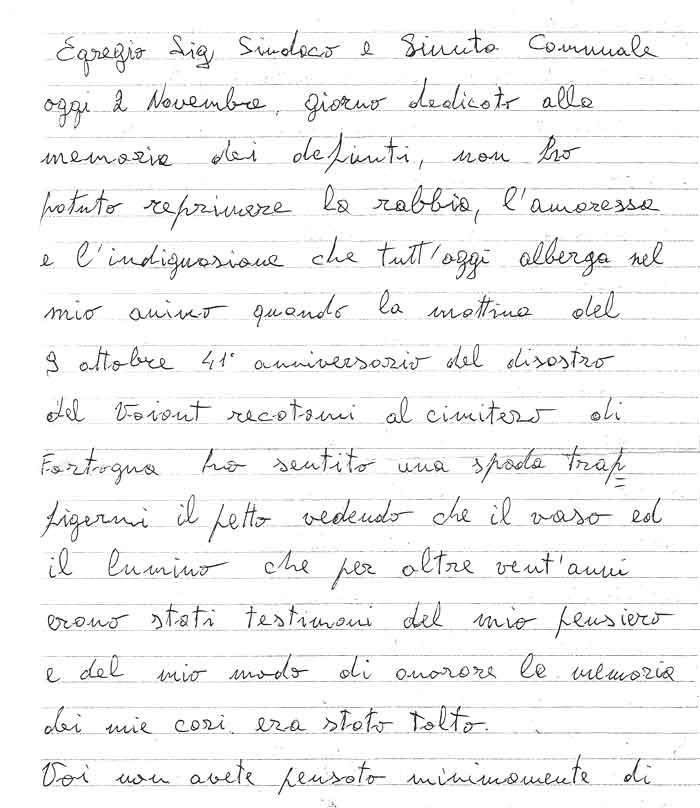 Egregio Sig Sindaco e Giunta Comunale
oggi 2 Novembre, giorno dedicato alla
memoria dei defunti, non ho
potuto reprimere la rabbia, l'amaressa
e l'indignasione che tutt'oggi alberga nel
mio animo quando la mattina del
9 ottobre 41° anniversario del disastro
del Vaiont recatomi al cimitero di
Fortogna ho sentito una spada traf=
figermi il petto vedendo che il vaso ed
il lumino che per oltre vent'anni
erano stati testimoni del mio pensiero
e del mio modo di onorare la memoria
dei mie cari era stato tolto.
Voi non avete pensato minimamente di